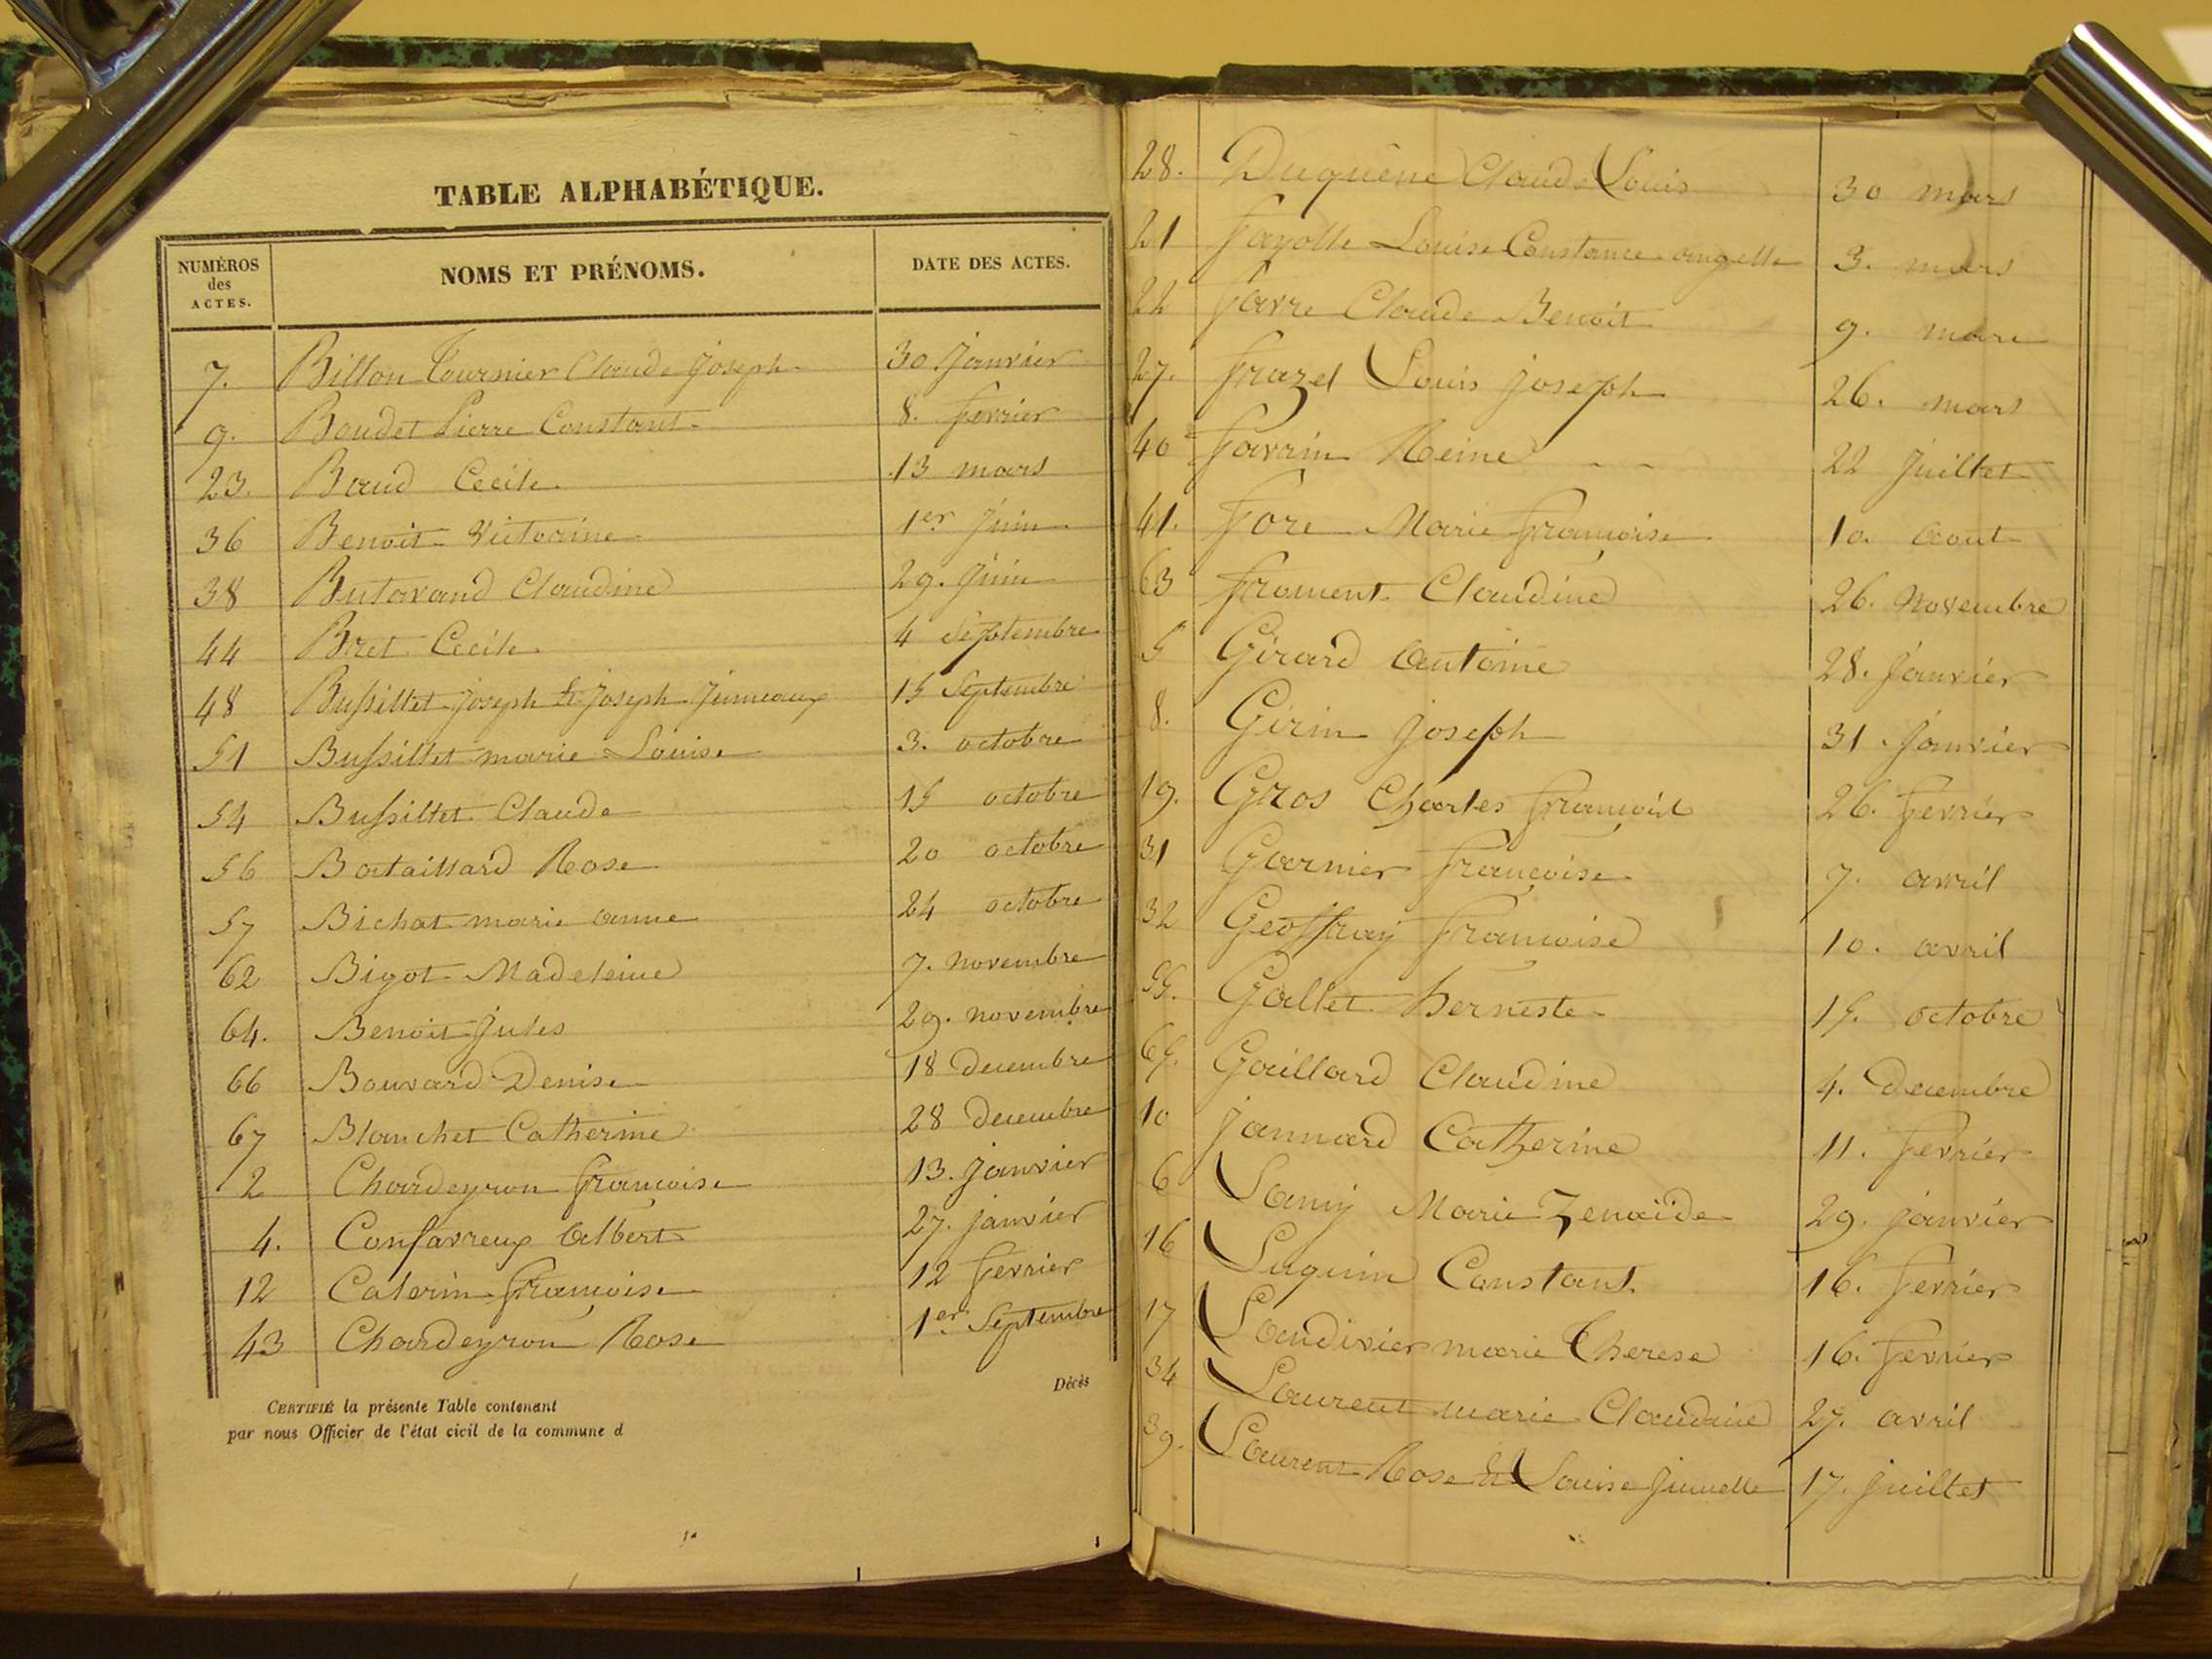 TABLE ALPHABÉTIQUE.
NUMÉROS des ACTES. NOMS ET PRÉNOMS. DATE DES ACTES.
7. Billon Tournier Claude Joseph 30 Janvier
9. Boudet Pierre Constant 8. fevrier
23. Baud Cecile 13 mars
36 Benoit Victorine 1er Juin
38 Butavand Claudine 29. Juin
44 Bret Cecile 4 Septembre
48 Bussillet Joseph & Joseph Jumeaux 15 Septembre
51 Bussillet marie Louise 3. octobre
54 Bussillet Claude 15 octobre
56 Bataillard Rose 20 octobre
57 Bichat marie anne 24 octobre
62 Bigot Madeleine 7. novembre
64. Benoit Jules 29. novembre
66 Bouvard Denise 18 decembre
67 Blanchet Catherine 28 decembre
2 Chardeyron francoise 13. Janvier
4. Confavreux Albert 27. janvier
12 Caterin francoise 12 fevrier
43 Chardeyron Rose 1er Septembre
Décès
CERTIFIÉ la présente Table contenant
par nous Officier de l'état cicil de la commune d
28. Duquêne Claude Louis 30 mars
21 fayolle Louise Constance angelle 3. mars
22 favre Claude Benoit 9. mars
27. frazel Louis joseph 26. mars
40 favrin Reine 22 Juillet
41. fore Marie francoise 10. aout
63 froment Claudine 26. novembre
5 Girard antoine 28. Janvier
8. Girin joseph 31. Janvier
19. Gros Charles francois 26. fevrier
31 Garnier francoise 7. avril
32 Geoffray francoise 10. avril
55. Gallet herneste 15. octobre
65. Gaillard Claudine 4. Decembre
10 jannard Catherine 11. fevrier
6 Lamy Marie Zenaïde 29. janvier
16 Luquin Constant. 16. fevrier
17 Laudivier marie Therese 16. fevrier
34 Laurent marie Claudine 27. avril
39. Laurent Rose & Louise Jumelle 17. juillet